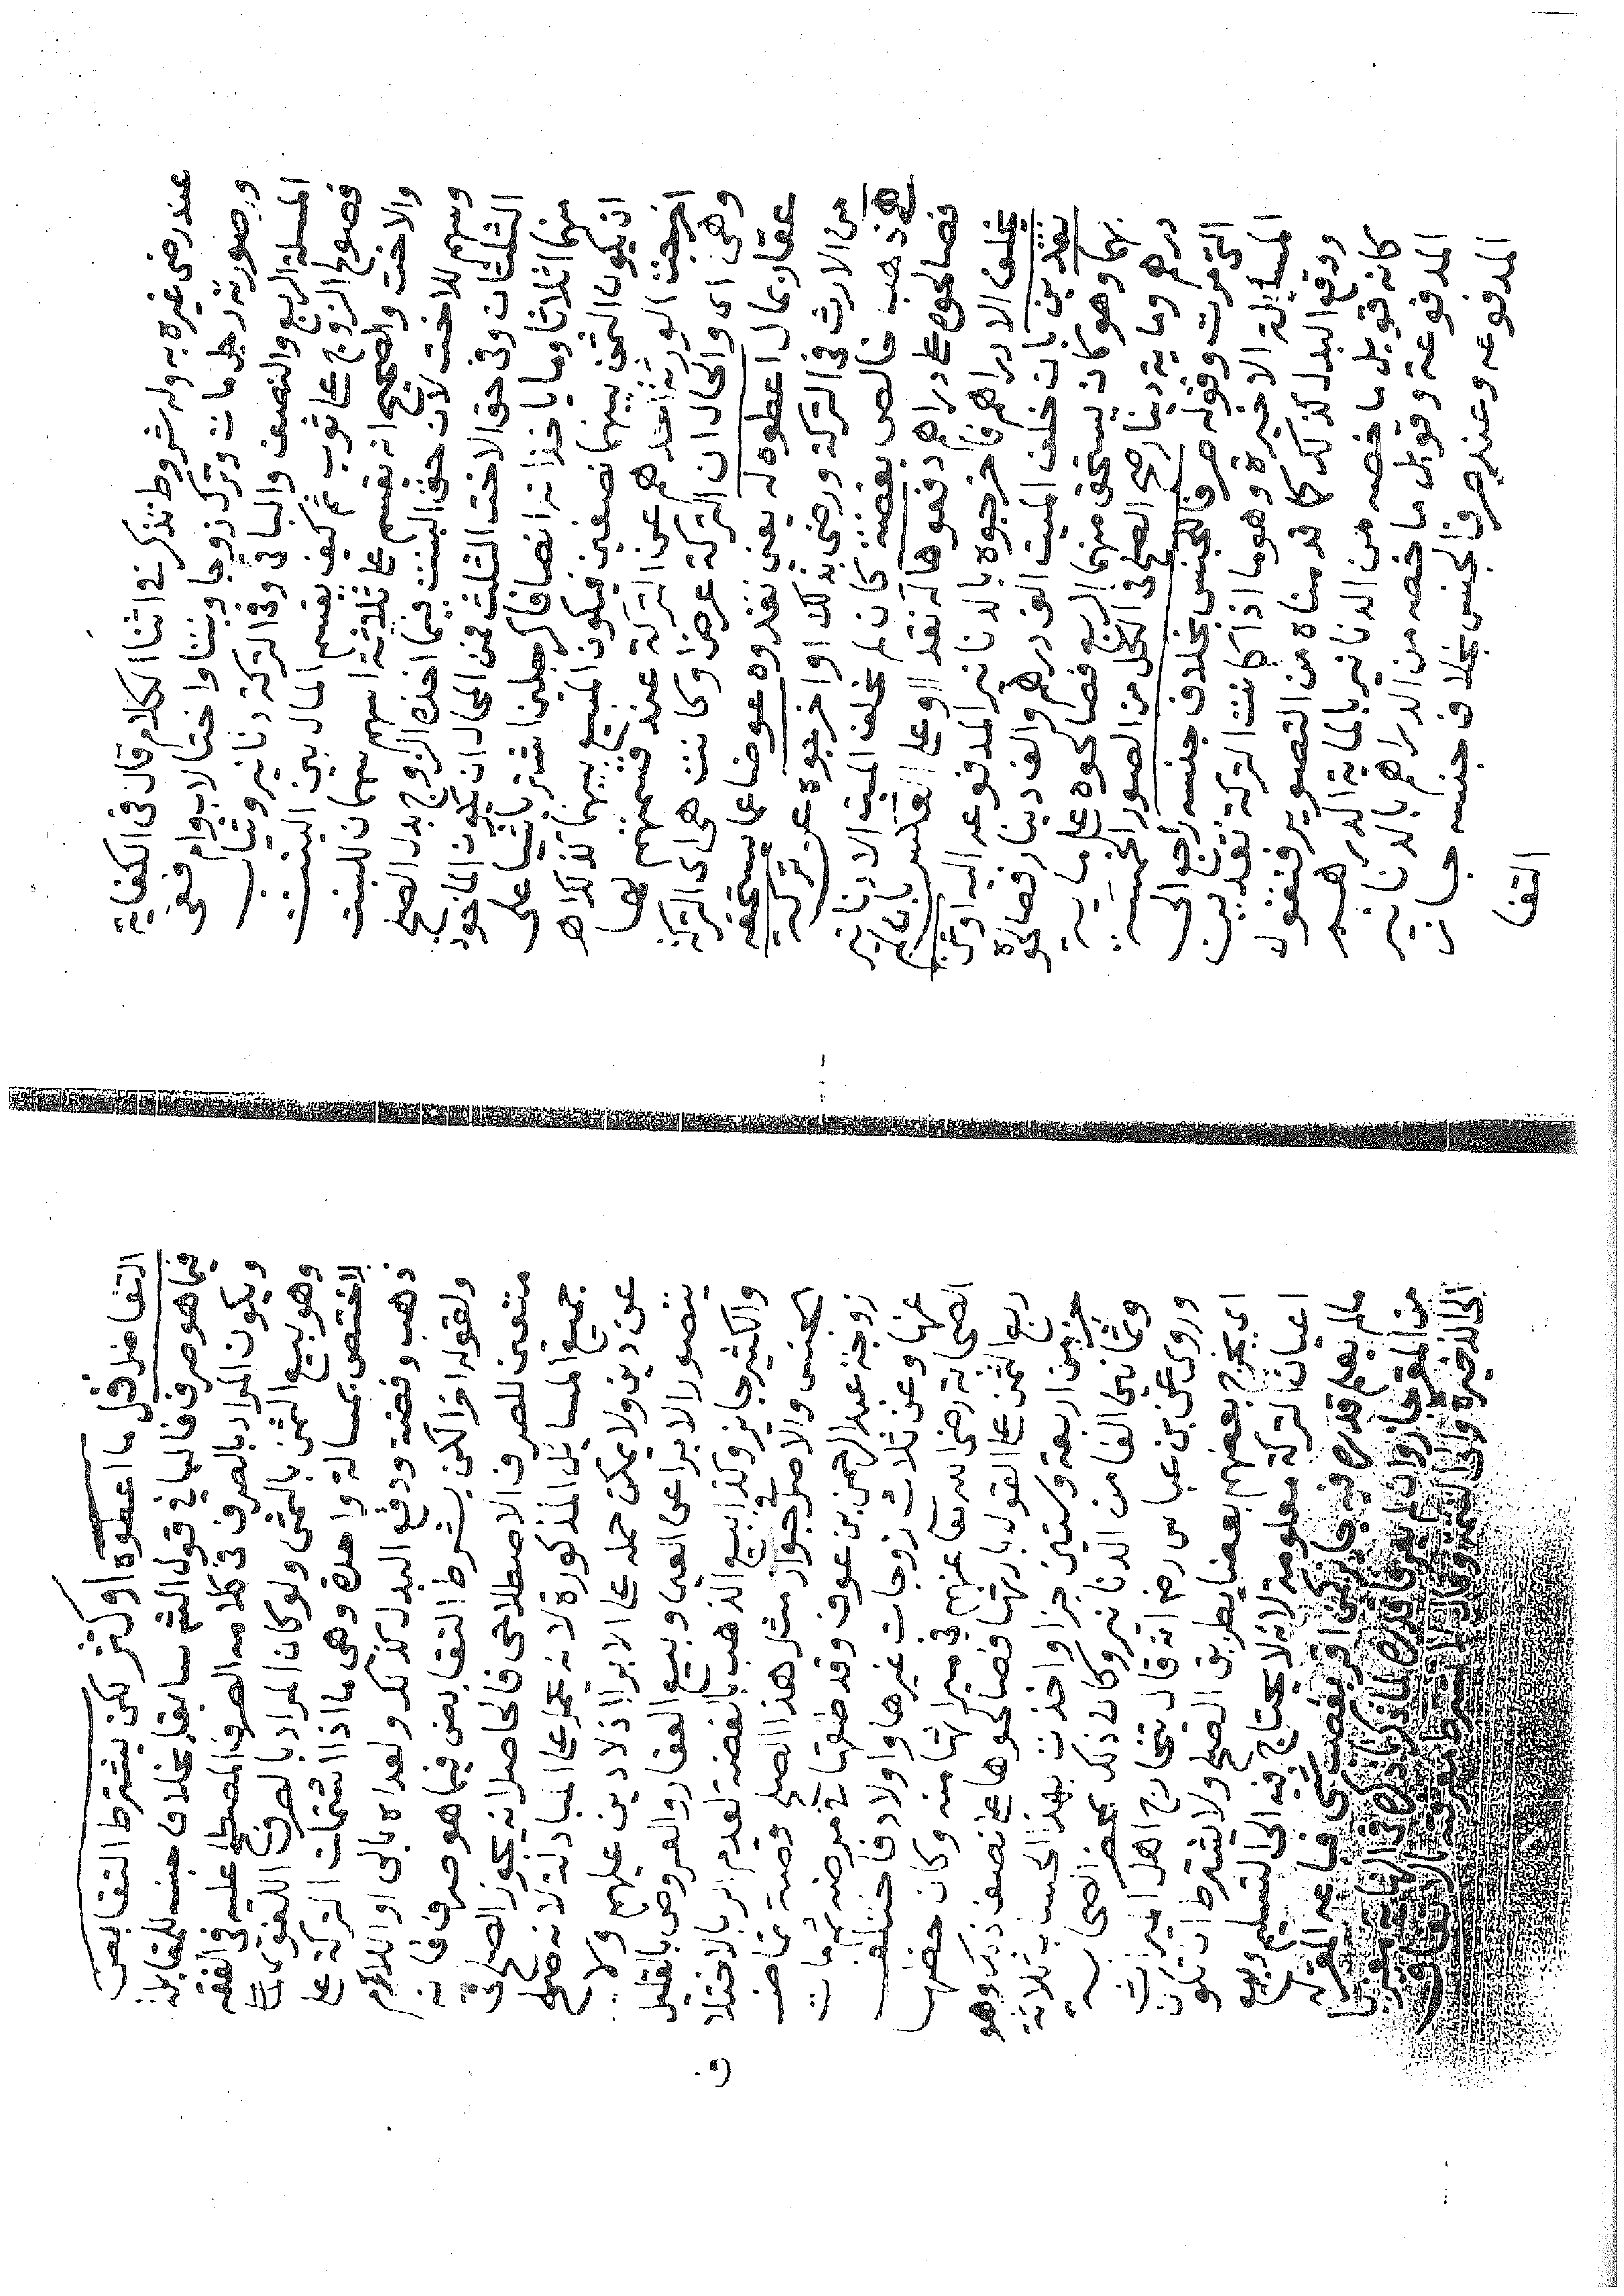 عند رضى غيره به وله شروط تذكر فى اثنا الكلام قال فى الكفاية
وصورته رجل مات وترك زوجا وبنتا واختا لاب وام ففى
المسئلة الربع والنصف والباقى وفى التركة دنانير وثياب
فصولح الزوج على ثوب ثم كيف يقسم المال بين البنت
والاخت والصحيح انه يقسم على ثلاثة اسهم سهمان للبنت
وسهم للاخت لان حق البنت فيما اخذه الزوج بدل الصلح
الثلثان وفى حق الاخت الثلث فمن المحال ان يكون الماخوذ
منهما اثلاثا وما ياخذانه انصافا كرجلين اشتريا شيئا على
ان يكون الثمن بينهما نصفين فيكون المبيع بينهما كذلك اه
اخرجت الورثة احدهم عن التركة عند قسمتهم لها
وهى اى والحال ان التركة عرض او كانت هى اى التركة
عقار بمال اعطوه له يعنى نقدوه عوضا عما يستحقه
من الارث فى التركة ورضى بذلك او اخرجوه عن تركة
هى ذهب خالص بفضة كان لم يخلف الميت الا دنانير
فصالحوه على دراهم دفعوها له نقدا او على العكس بان لم
يخلف الا دراهم فاخرجوه بالدنانير المدفوعه اليه او عن
نقدين بان خلف الميت الف درهم والف دينار فصالحوه
بهما وهو كان يستحق منهما الربع فصالحوه على ماية
درهم وماية دينار صح الصلح فى الكل من الصور الخمسه
التى مرت وقوله صرفا للجنس بخلاف جنسه راجع الى
المسألة الاخيرة وهو ما اذا كانت التركة نقدين
ودفع البدل كذلك كما قدمناه من التصوير فنقول
كانه قوبل ما خصه من الدنانير بالماية الدرهم
المدفوعة وقوبل ما خصه من الدراهم بالدنانير
المدفوعه وعند صرف الجنس بخلاف جنسه جاز
التفا
التفاضل قل ما اعطوه او كثر لكن يشترط التقابض
فيما هو صرف فالباقى قول الشم سابقا بخلاف جنسه للمقابلة
ويكون المراد بالصرف فى كلامه الصرف المصطلح عليه فى الفقه
وهو بيع الثمن بالثمن ولو كان المراد بالصرف اللغوى
لاختص بمسالة واحدة وهى ما اذا اشتملت التركة على
ذهب وفضة ودفع البدل كذلك ولعداه بالى او اللام
ولقوله اخر لكن بشرط التقابض فيما هو صرف فانه
متعين للصرف الاصطلاحى فالحاصل انه يجوز الصلح فى
جميع المسايل المذكورة لانه يحمل على المبادلة لانه صلح
عن دين ولا يمكن حمله على الابرا اذ لا دين عليهم ولا
يتصور الابرا عن العين وبيع العقار والعروض بالقليل
والكثير جايز وكذا بيع الذهب بالفضة لعدم الربا لاختلاف
الجنس والاصل فى جواز مثل هذا الصلح قصة تماضر
زوجة عبد الرحمن بن عوف وقد طلقها فى مرضه ثم مات
عنها وعن ثلاث زوجات غيرها واولاد فاختلف
الصحابة رضى الله تعا عنهم فى ميراثها منه وكان حظها
ربع الثمن على القول بارثها فصالحوها على نصف ذلك وهو
جزء من اربعة وستين جزا واخذت بهذا الحساب ثلاثة
وثمانين الفا من الدنانير وكان ذلك بمحضر الصحابه
وروى عن بن عباس رضى انه قال يتخارج اهل الميراث
اى يخرج بعضهم بعضا بطريق الصلح ولا يشترط ان تكون
اعيان التركة معلومة لانه لا يحتاج فيه الى التسليم وبيع
ما لم يعلم قدره فيه جايز كمن اقر بغصب شى فباعه المقر له
من المقر جاز وان لم يعرفا قدره المذكور ذكره فى النهاية معزيا
الى الذخيرة والى التتمة وقال لا يشترط معرفته بالاتفاق